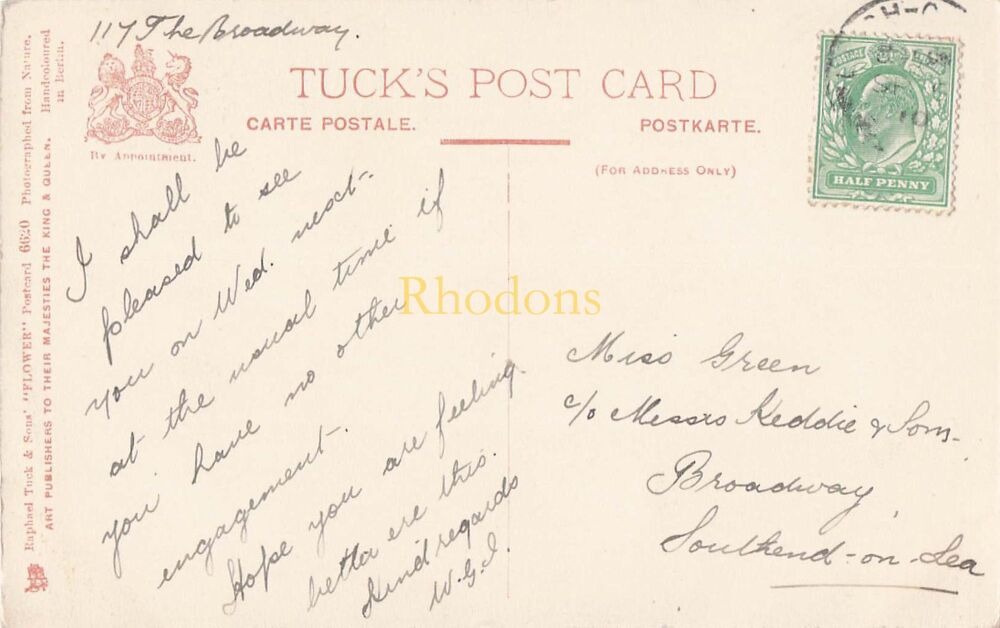 117 The Broadway.
TUCK'S POST CARD
CARTE POSTALE.
POSTKARTE.
(FOR ADDRESS ONLY)
By Appointment.
HALF PENNY
Raphael Tuck & Sons' "FLOWER" Postcard 6620 Photographed from Nature. Handcoloured
in Berlin.
ART PUBLISHERS TO THEIR MAJESTIES THE KING & QUEEN.
I shall be
pleased to see
you on Wed. next-
at the usual time if
you have no other
engagement.
Hope you are feeling
better ere this.
Kind regards
W.G.I.
Rhodons
Miss Green
c/o Messrs Keddie & Sons.
Broadway
Southend-on-Sea